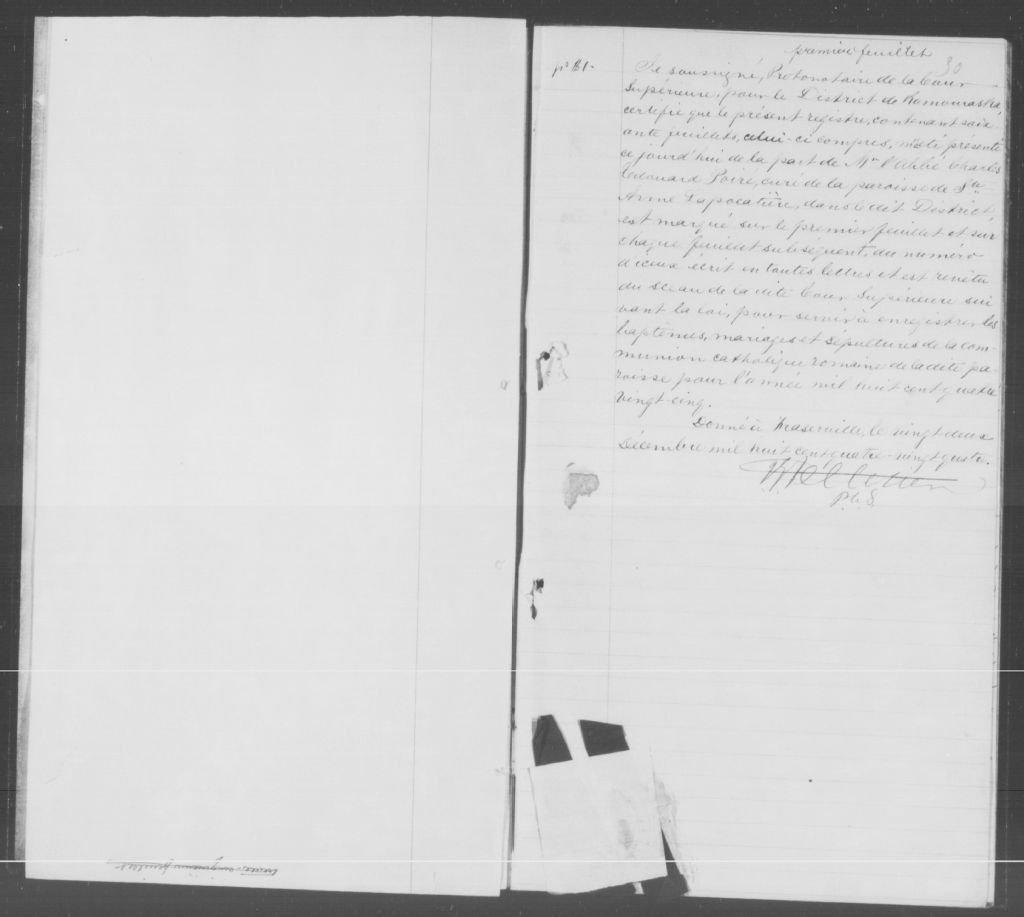 premier feuillet
30
Je soussigné, Protonotaire de la Cour
Supérieure, pour le District de Kamouraska,
certifie que le présent registre, contenant soix-
ante feuillets, celui-ci compris, m'a été présenté
ce jourd'hui de la part de Mr l'Abbé Charles
Edouard Poiré, curé de la paroisse de Ste
Anne Lapocatière, dans le dit District,
est marqué sur le premier feuillet et sur
chaque feuillet subséquent, du numéro
d'iceux écrit en toutes lettres et est revêtu
du sceau de la dite Cour Supérieure sui
vant la loi, pour servir à enregistrer les
baptêmes, mariages et sépultures de la com-
munion catholique romaine de la dite pa-
roisse pour l'année mil huit cent quatre
vingt-cinq.
Donné à Fraserville, le vingt deux
Décembre mil huit cent quatre-vingt quatre.
P.C.S.